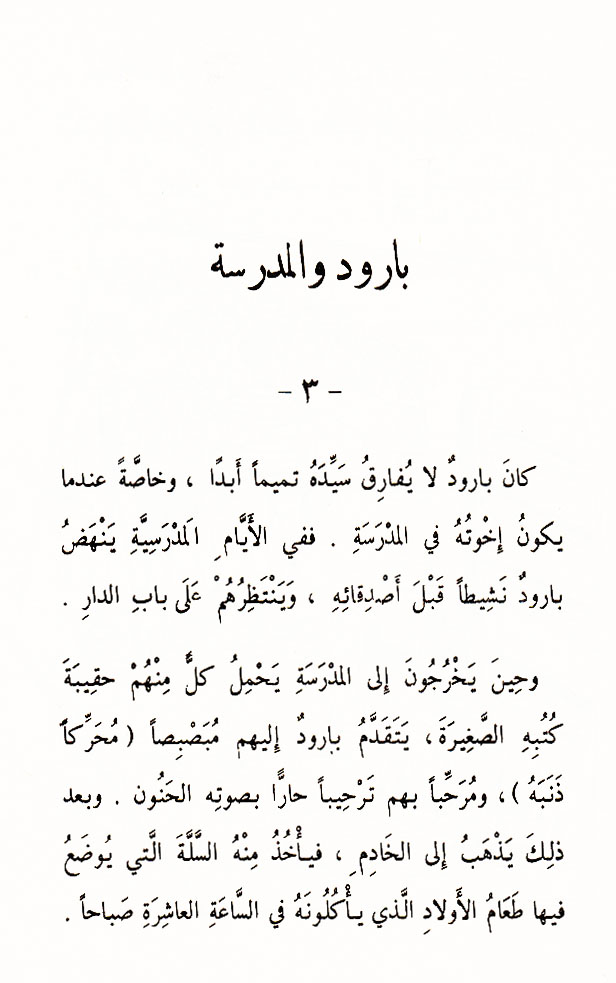 بارود والمدرسة
- ٣ -
كانَ بارودٌ لا يُفارِقُ سَيِّدَهُ تميماً أَبدًا ، وخاصَّةً عندما
يكونُ إِخْوتُهُ في المدْرَسَةِ . ففي الأَيَّامِ المَدْرَسِيَّةِ يَنْهَضُ
بارودٌ نَشِيطاً قَبْلَ أَصْدِقائِهِ ، وَيَنْتَظِرُهُمْ عَلَى بابِ الدارِ .
وحِينَ يَخْرُجُونَ إِلى المدْرَسَةِ يَحْمِلُ كلٌّ مِنْهُمْ حقيبَةَ
كُتُبِهِ الصَّغِيرَةَ، يَتَقَدَّمُ بارودٌ إِليهم مُبَصْبِصاً ( مُحَرِّكاً
ذَنَبَهُ )، ومُرَحِّباً بهم تَرْحِيباً حارًّا بصوتِه الحَنُون . وبعد
ذلِكَ يَذْهَبُ إِلى الخَادِمِ ، فيأْخُذُ مِنْهُ السَّلَّةَ الَّتي يُوضَعُ
فيها طَعَامُ الأَولادِ الَّذي يأْكُلُونَهُ في السَّاعَةِ العاشِرَةِ صَباحاً .